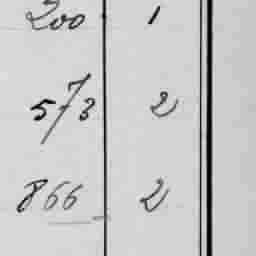 200 1
573 2
866 2